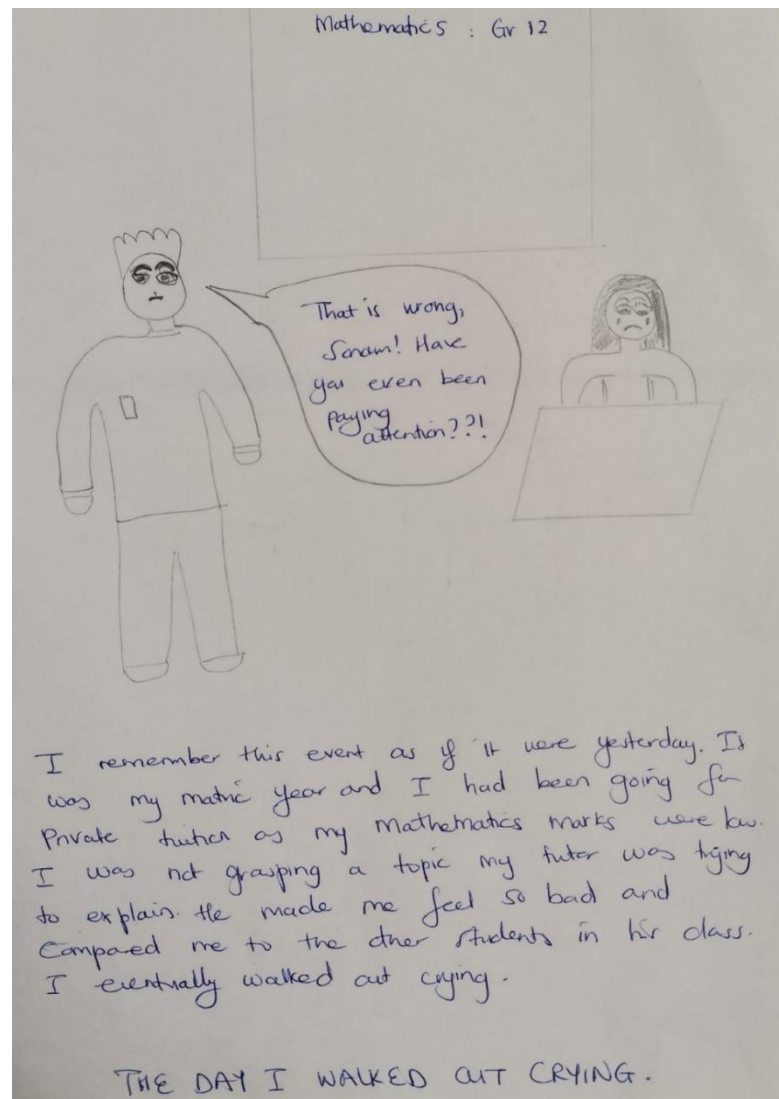 Mathematics : Gr 12
That is wrong,
Sonam! Have
you even been
paying
attention??!
I remember this event as if it were yesterday. It
was my matric year and I had been going for
Private tuition as my Mathematics marks were low.
I was not grasping a topic my tutor was trying
to explain. He made me feel so bad and
Compared me to the other students in his class.
I eventually walked out crying.
THE DAY I WALKED OUT CRYING.